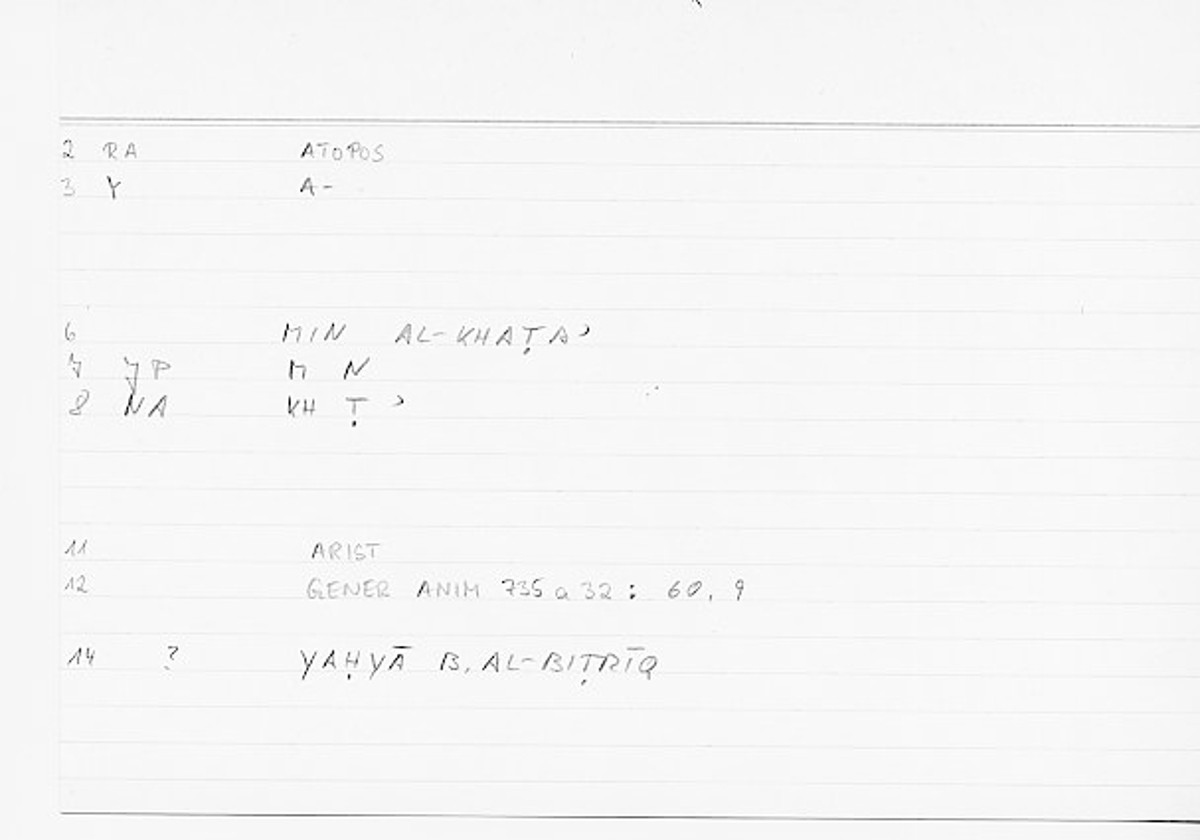 2 RA ATOPOS
3 Y A-
6 MIN AL-KHAṬAʾ
7 YP M N
8 NA KH Ṭ ʾ
11 ARIST
12 GENER ANIM 735 a 32 : 60, 9
14 ? YAḤYĀ B. AL-BIṬRĪQ